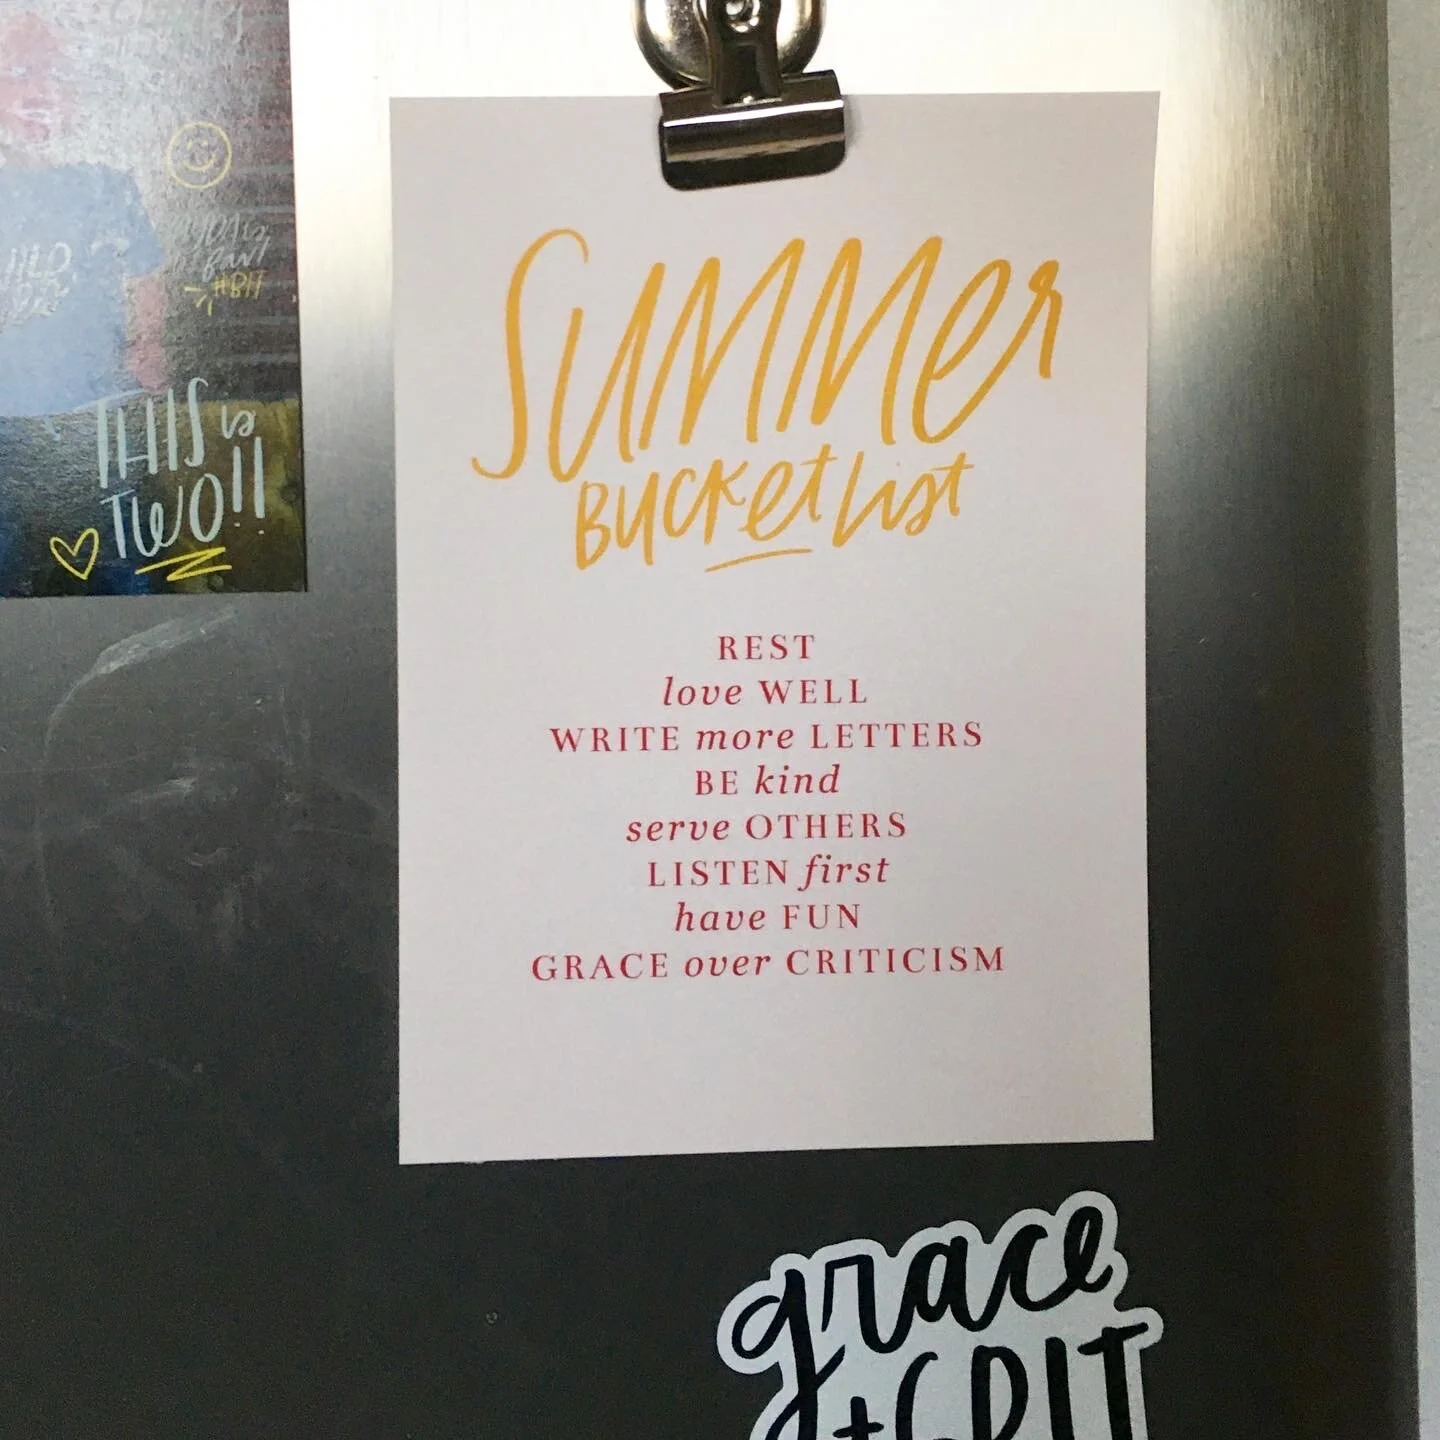 Summer
Bucket List
REST
love WELL
WRITE more LETTERS
BE kind
serve OTHERS
LISTEN first
have FUN
GRACE over CRITICISM
THIS is
TWO!!
grace
+ GRIT